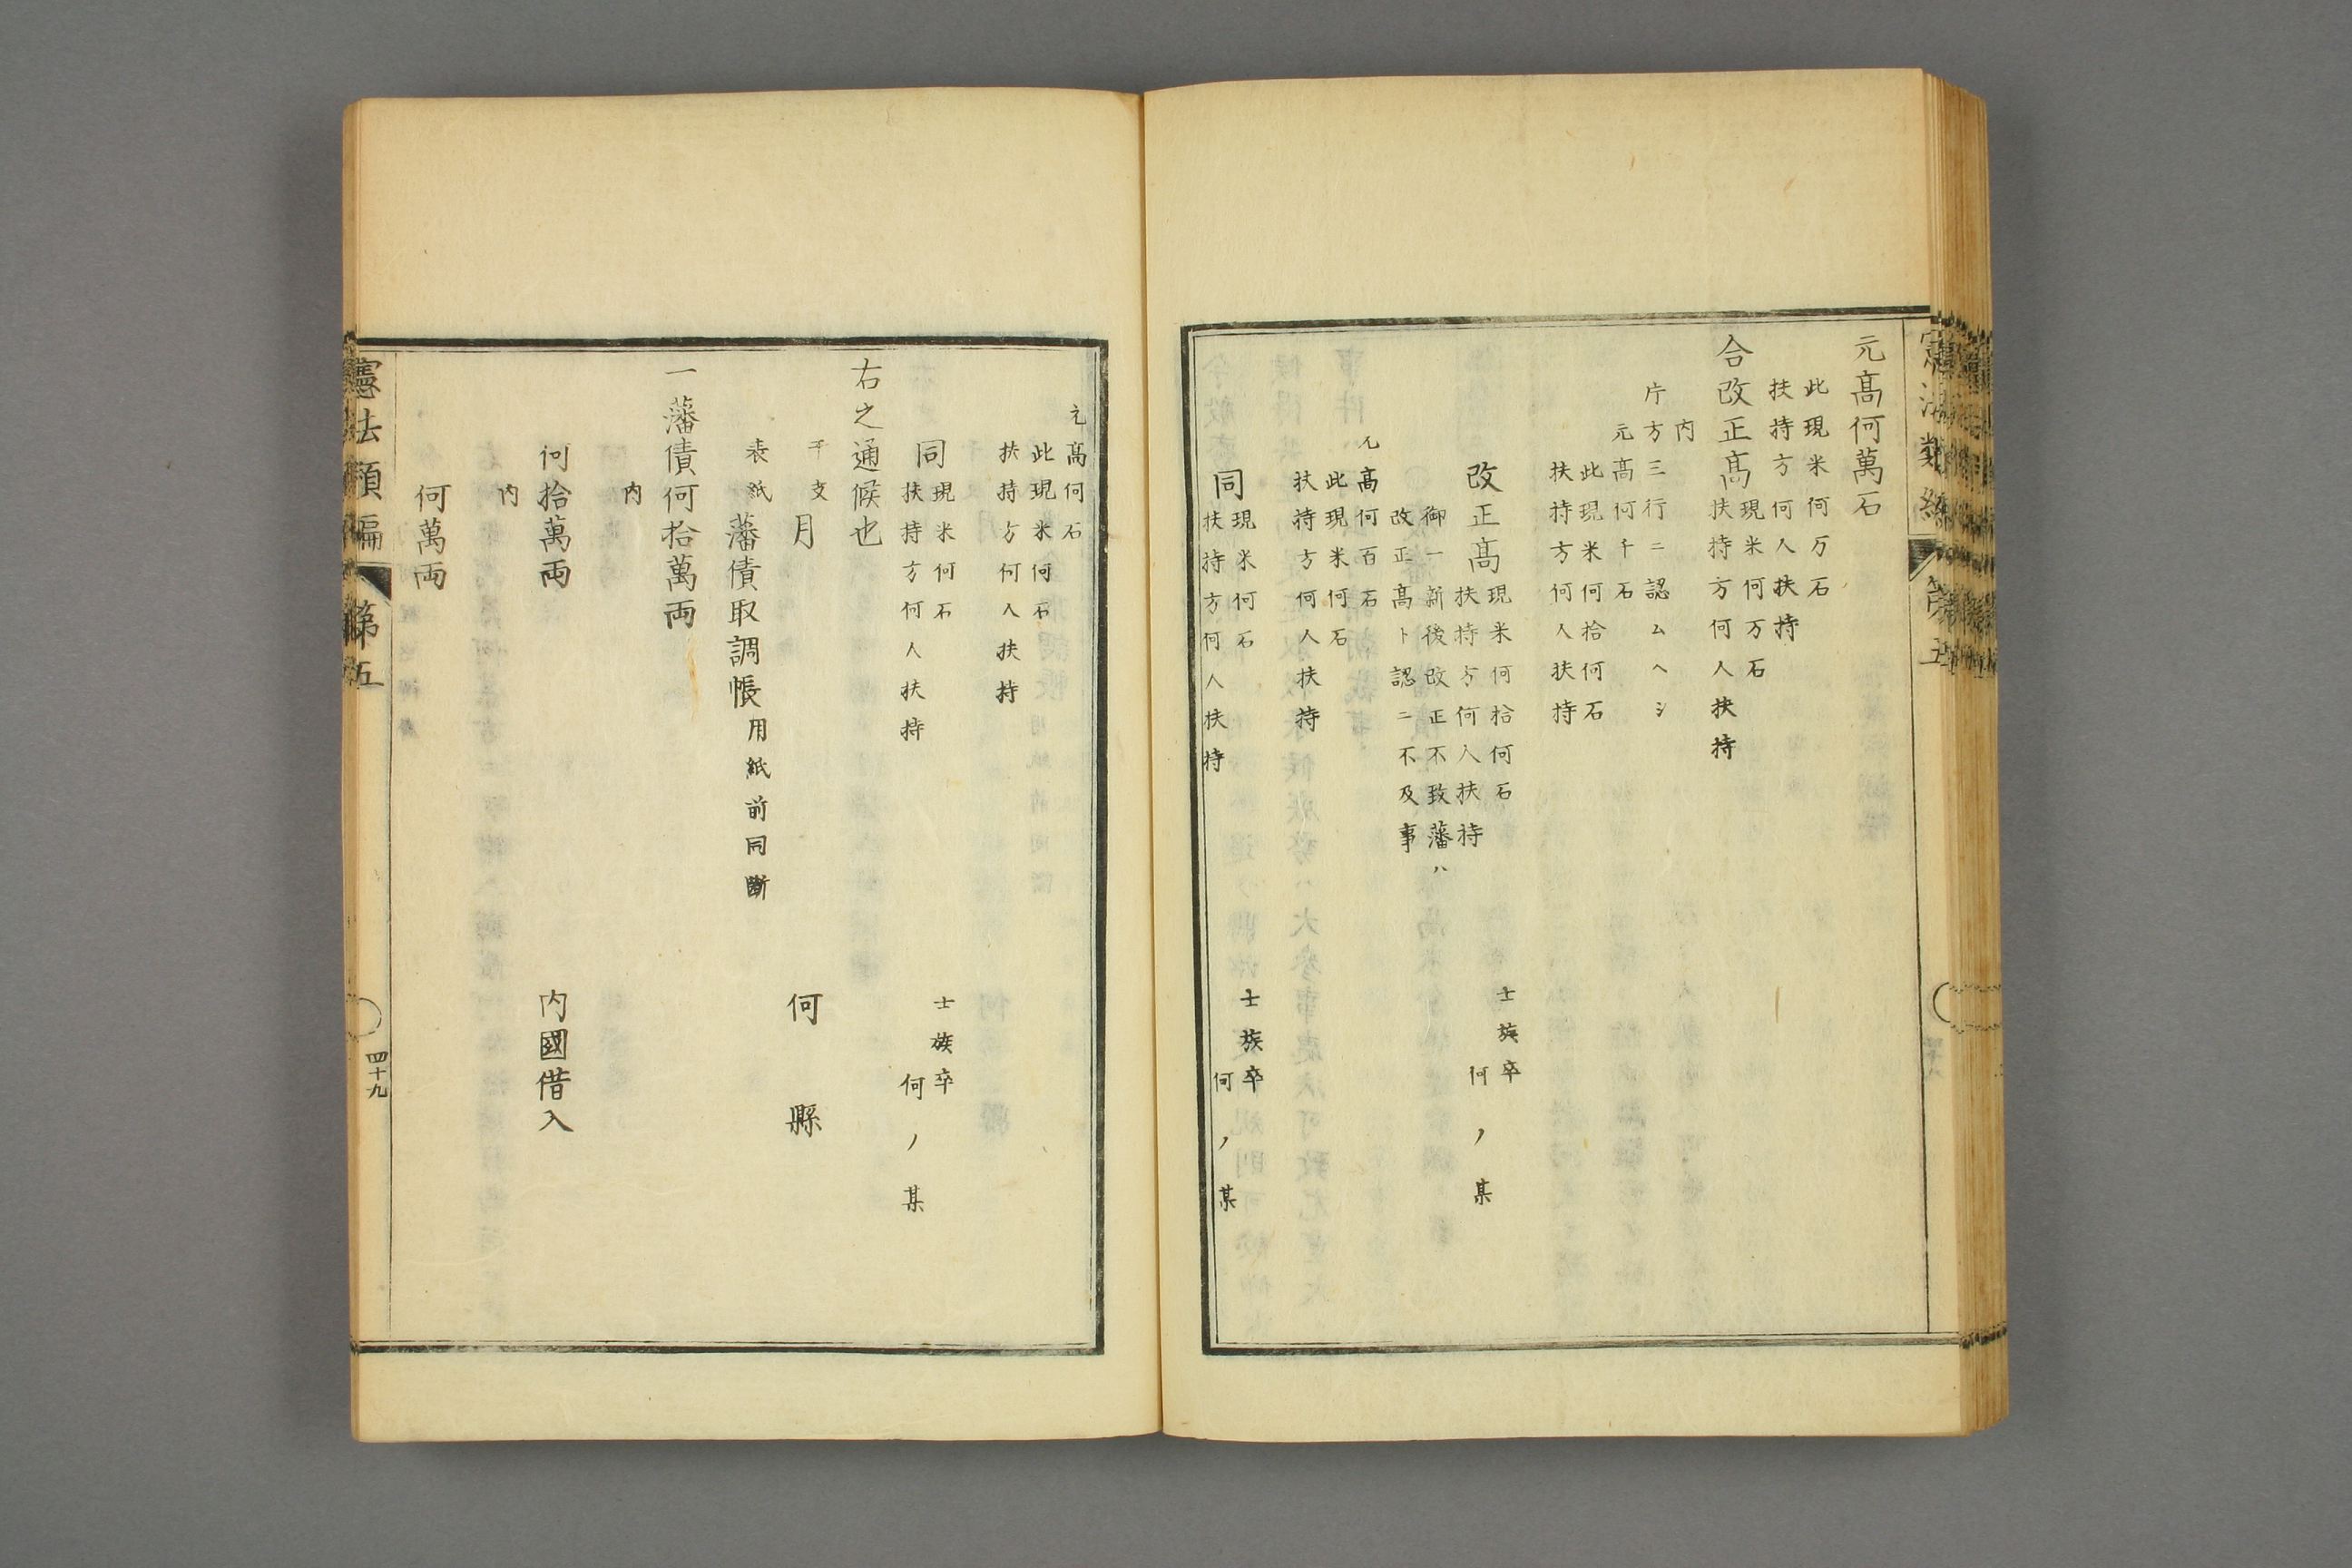 元髙何萬石
此現米何万石
扶持方何人扶持
合改正髙
現米何万石
扶持方何人扶持
内
庁方三行ニ認ムヘシ
元髙何千石
此現米何拾何石
扶持方何人扶持
改正髙
現米何拾何石
扶持方何人扶持
士族卒
何ノ某
御一新後改正不致藩ハ
改正髙ト認ニ不及事
元髙何百石
此現米何石
扶持方何人扶持
同
現米何石
扶持方何人扶持
士族卒
何ノ某
元髙何石
此現米何石
扶持方何人扶持
同
現米何石
扶持方何人扶持
士族卒
何ノ某
右之通候也
干支
月
何縣
表紙
藩債取調帳
用紙前同斷
一藩債何拾萬両
内
何拾萬両
内國借入
内
何萬両
憲法類編
第五
四十九